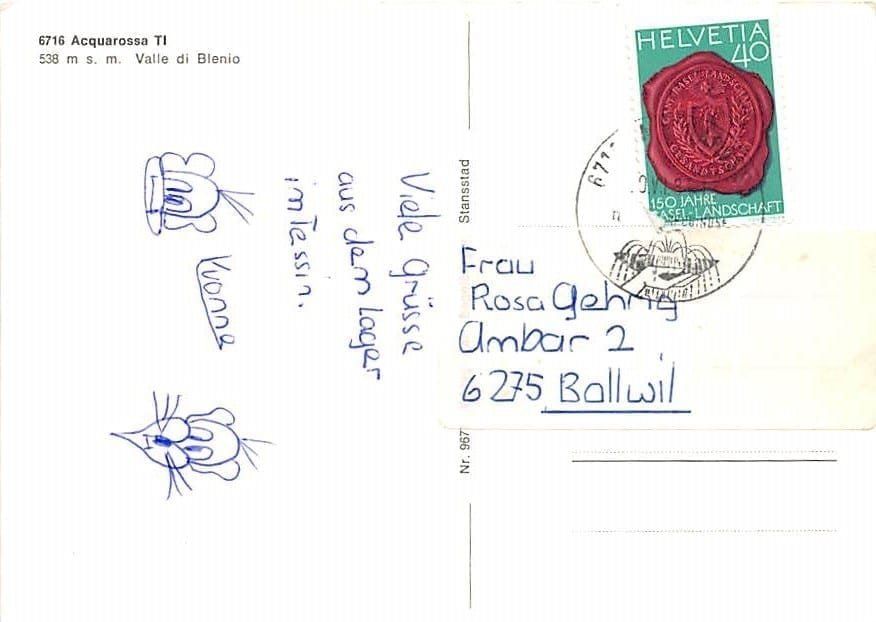 6716 Acquarossa TI
538 m s. m. Valle di Blenio
Viele Grüsse
aus dem Lager
im Tessin.
Yvonne
Stansstad
Nr. 967
HELVETIA
40
CANT. BASEL-LANDSCHAFT
150 JAHRE
BASEL-LANDSCHAFT
671
Frau
Rosa Gehrig
Ambar 2
6275 Ballwil